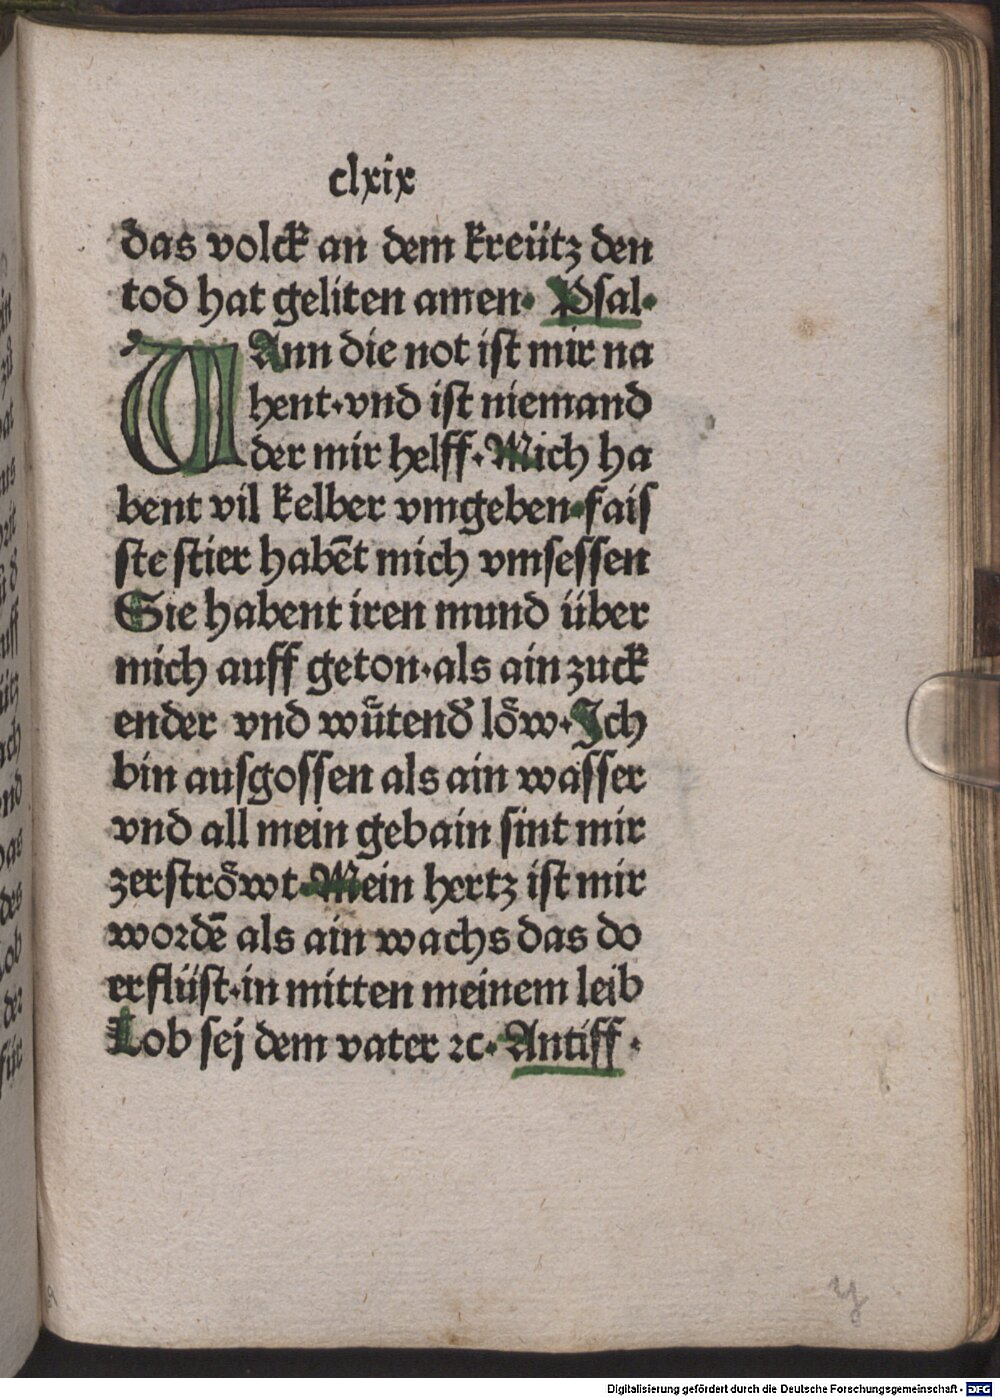 clxix
das volck an dem kreütz den
tod hat geliten amen· Psal·
WAnn die not ist mir na
hent·vnd ist niemand
der mir helff·Mich ha
bent vil kelber vmgeben·fais
ste stier habēt mich vmsessen
Sie habent iren mund über
mich auff geton·als ain zuck
ender vnd wütend löw·Ich
bin ausgossen als ain wasser
vnd all mein gebain sint mir
zerströwt·Mein hertz ist mir
wordē als ain wachs das do
erflüst·in mitten meinem leib
Lob sej dem vater ⁊c·Antiff·
y
Digitalisierung gefördert durch die Deutsche Forschungsgemeinschaft - DFG